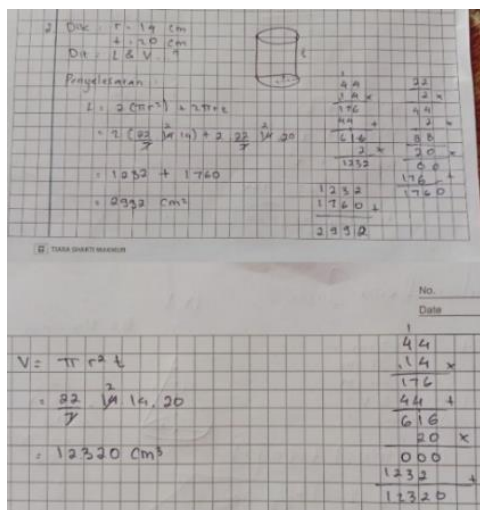 2. Dik : r = 14 cm
t = 20 cm
Dit : L & V ?
Penyelesaian
L = 2 (πr²) + 2πrt
= 2 (22/7 14 14) + 2 22/7 14 20
2 2
= 1232 + 1760
= 2992 cm²
t
1
44
14 x
176
44 +
616
2 x
1232
22
2 x
44
2 x
88
20 x
00
176 +
1760
1232
1760 +
2992
TIARA SHAKTI MAKMUR
No.
Date
V = π r² t
2
= 22/7 . 14 14 . 20
= 12320 cm³
1
44
14 x
176
44 +
616
20 x
000
1232 +
12320